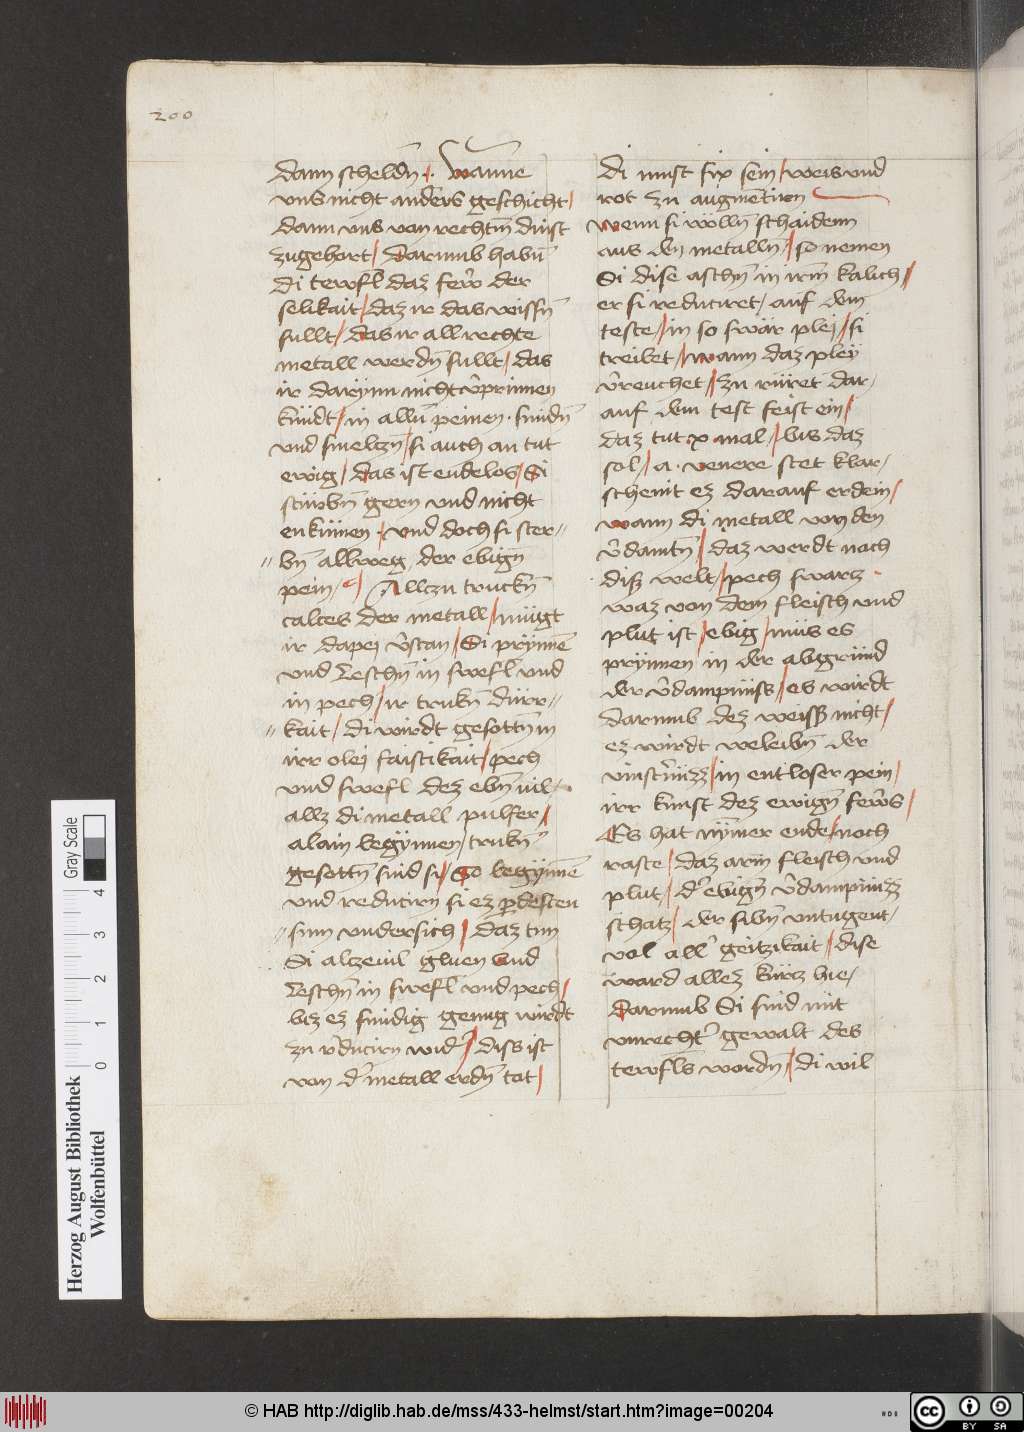 200
dann scheldn̄ · Wanne
vns nicht anders geschicht /
dann vns von rechtm̄ dinst
zugehort / Darumb habn̄
di tewfl daz fewr̄ der
selikait / daz ir das weissn̄
sullt / das ir all rechte
metall werdn̄ sullt / das
ir darynn nicht v̄prinnen
kündt / in alln̄ peinen · sindn̄
vnd smelczn̄ / si auch an tut
ewig / das ist endelos / Si
stürbn̄ gern vnd nicht
enkümen · / vnd doch si ster⸗
bn̄ allweg der ebign̄
pein / Allzu truckn̄
calces der metall / mügt
ir dapei v̄stan / Si prynnē
vnd leschn̄ in swefl vnd
in pech / ir trukn̄ dürr⸗
kait / di wirdt gesottn̄ in
irr olei faistikait / pech
vnd swefl dez ebn̄ uil
allz di metall pulfer /
alain begynnen / trukn̄
gesottn̄ sind si / So begynnē
vnd reducirn si ez
sinn vndersich / daz tun
Si alzeuil gluen vnd
leschn̄ in swefl vnd pech /
biz ez sindig genug wirdt
zu rducirn wid' / diss ist
von d' metall erdn̄ tot /
di must fix sein / weis vnd
rot zu augmētirn
wenn si wölln̄ schaidenn
aus den metalln̄ / so nemen
Si dise aschn̄ in irm̄ kalich /
er si reduciret / auf dem̄
teste / in so swär plei / si
treibet / wann daz pley
v̄reuchet / zu rüret dar /
auf dem test feist ein /
daz tut x mal / bis daz
sol / a · venere stet klar /
schenit ez darauf erdein /
wann di metall von den
v̄damtn̄ / daz werdt nach
disz welt / pech swarz ·
waz von dem fleisch vnd
plut ist / ebig / müs es
prynnen in der abgründ
der v̄dampnüss / es wirdt
darumb dez weiss nicht /
ez wirdt beleibn̄ der
vinstr̄nüzz / in entloser pein /
irr kunst dez ewign̄ fewrs /
Es hat nymer ende / noch
raste / daz arm̄ fleisch vnd
plut / d' ebign̄ v̄dampnüzz
schatz / der sibn̄ vntugent /
vol all' geitzikait / dise
ward allez kürz hie /
Darumb Si sind mit
vnrecht' gewalt des
tewfls wordn̄ / di wil
Herzog August Bibliothek
Wolfenbüttel
Gray Scale
0 1 2 3 4
© HAB http://diglib.hab.de/mss/433-helmst/start.htm?image=00204
HAB
cc
BY SA